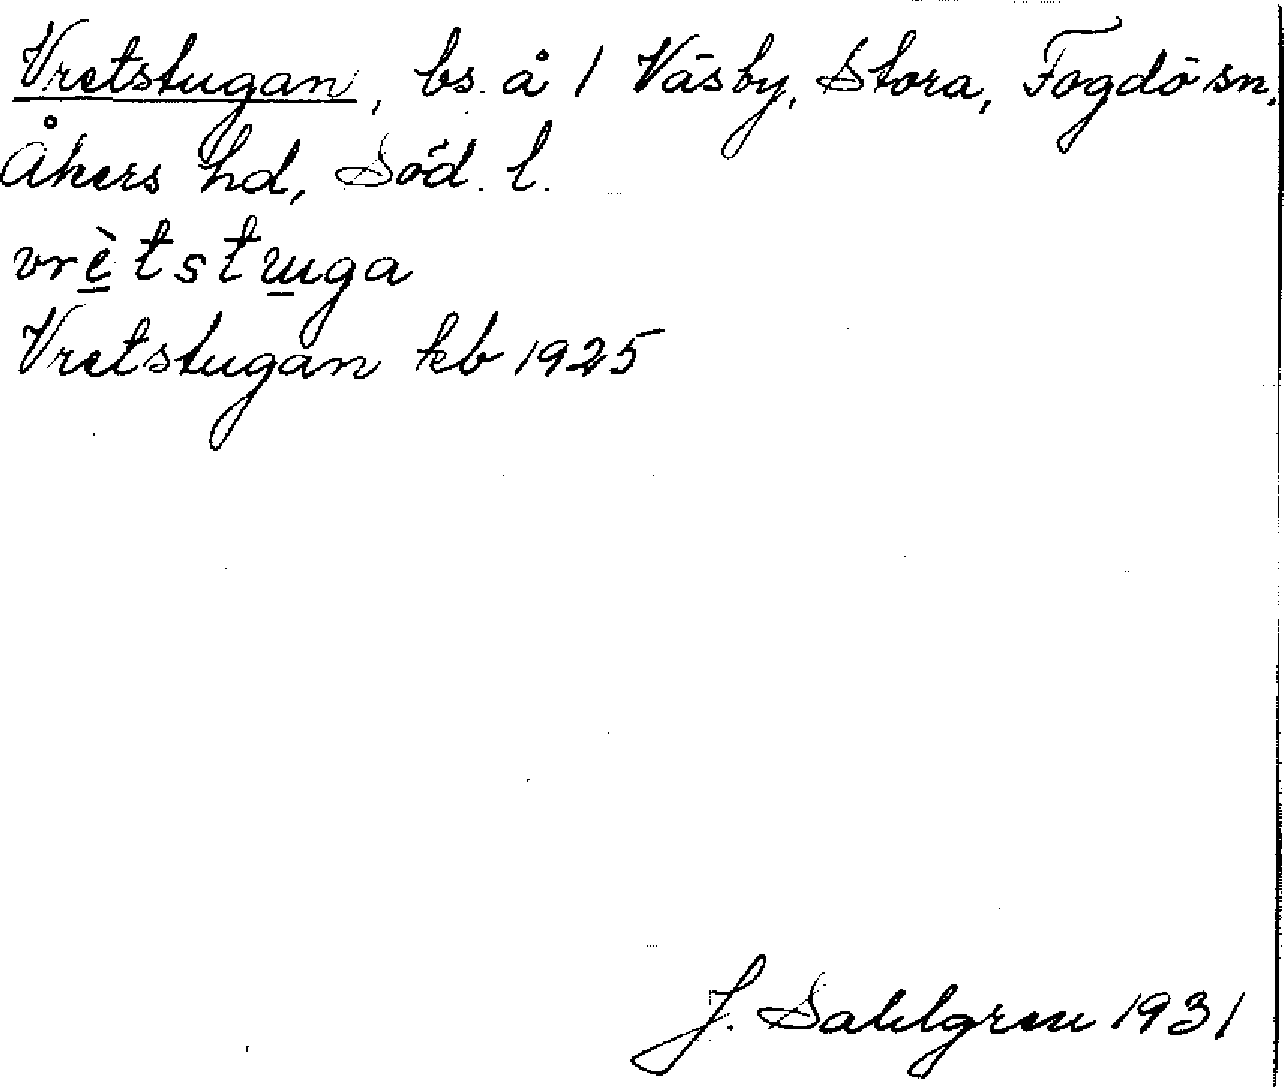 Vretstugan, bs. å 1 Väsby, Stora, Fogdö sn.
Åkers hd, Söd. l.
vrè̲tstɯ̲ga
Vretstugan kb 1925
J. Sahlgren 1931